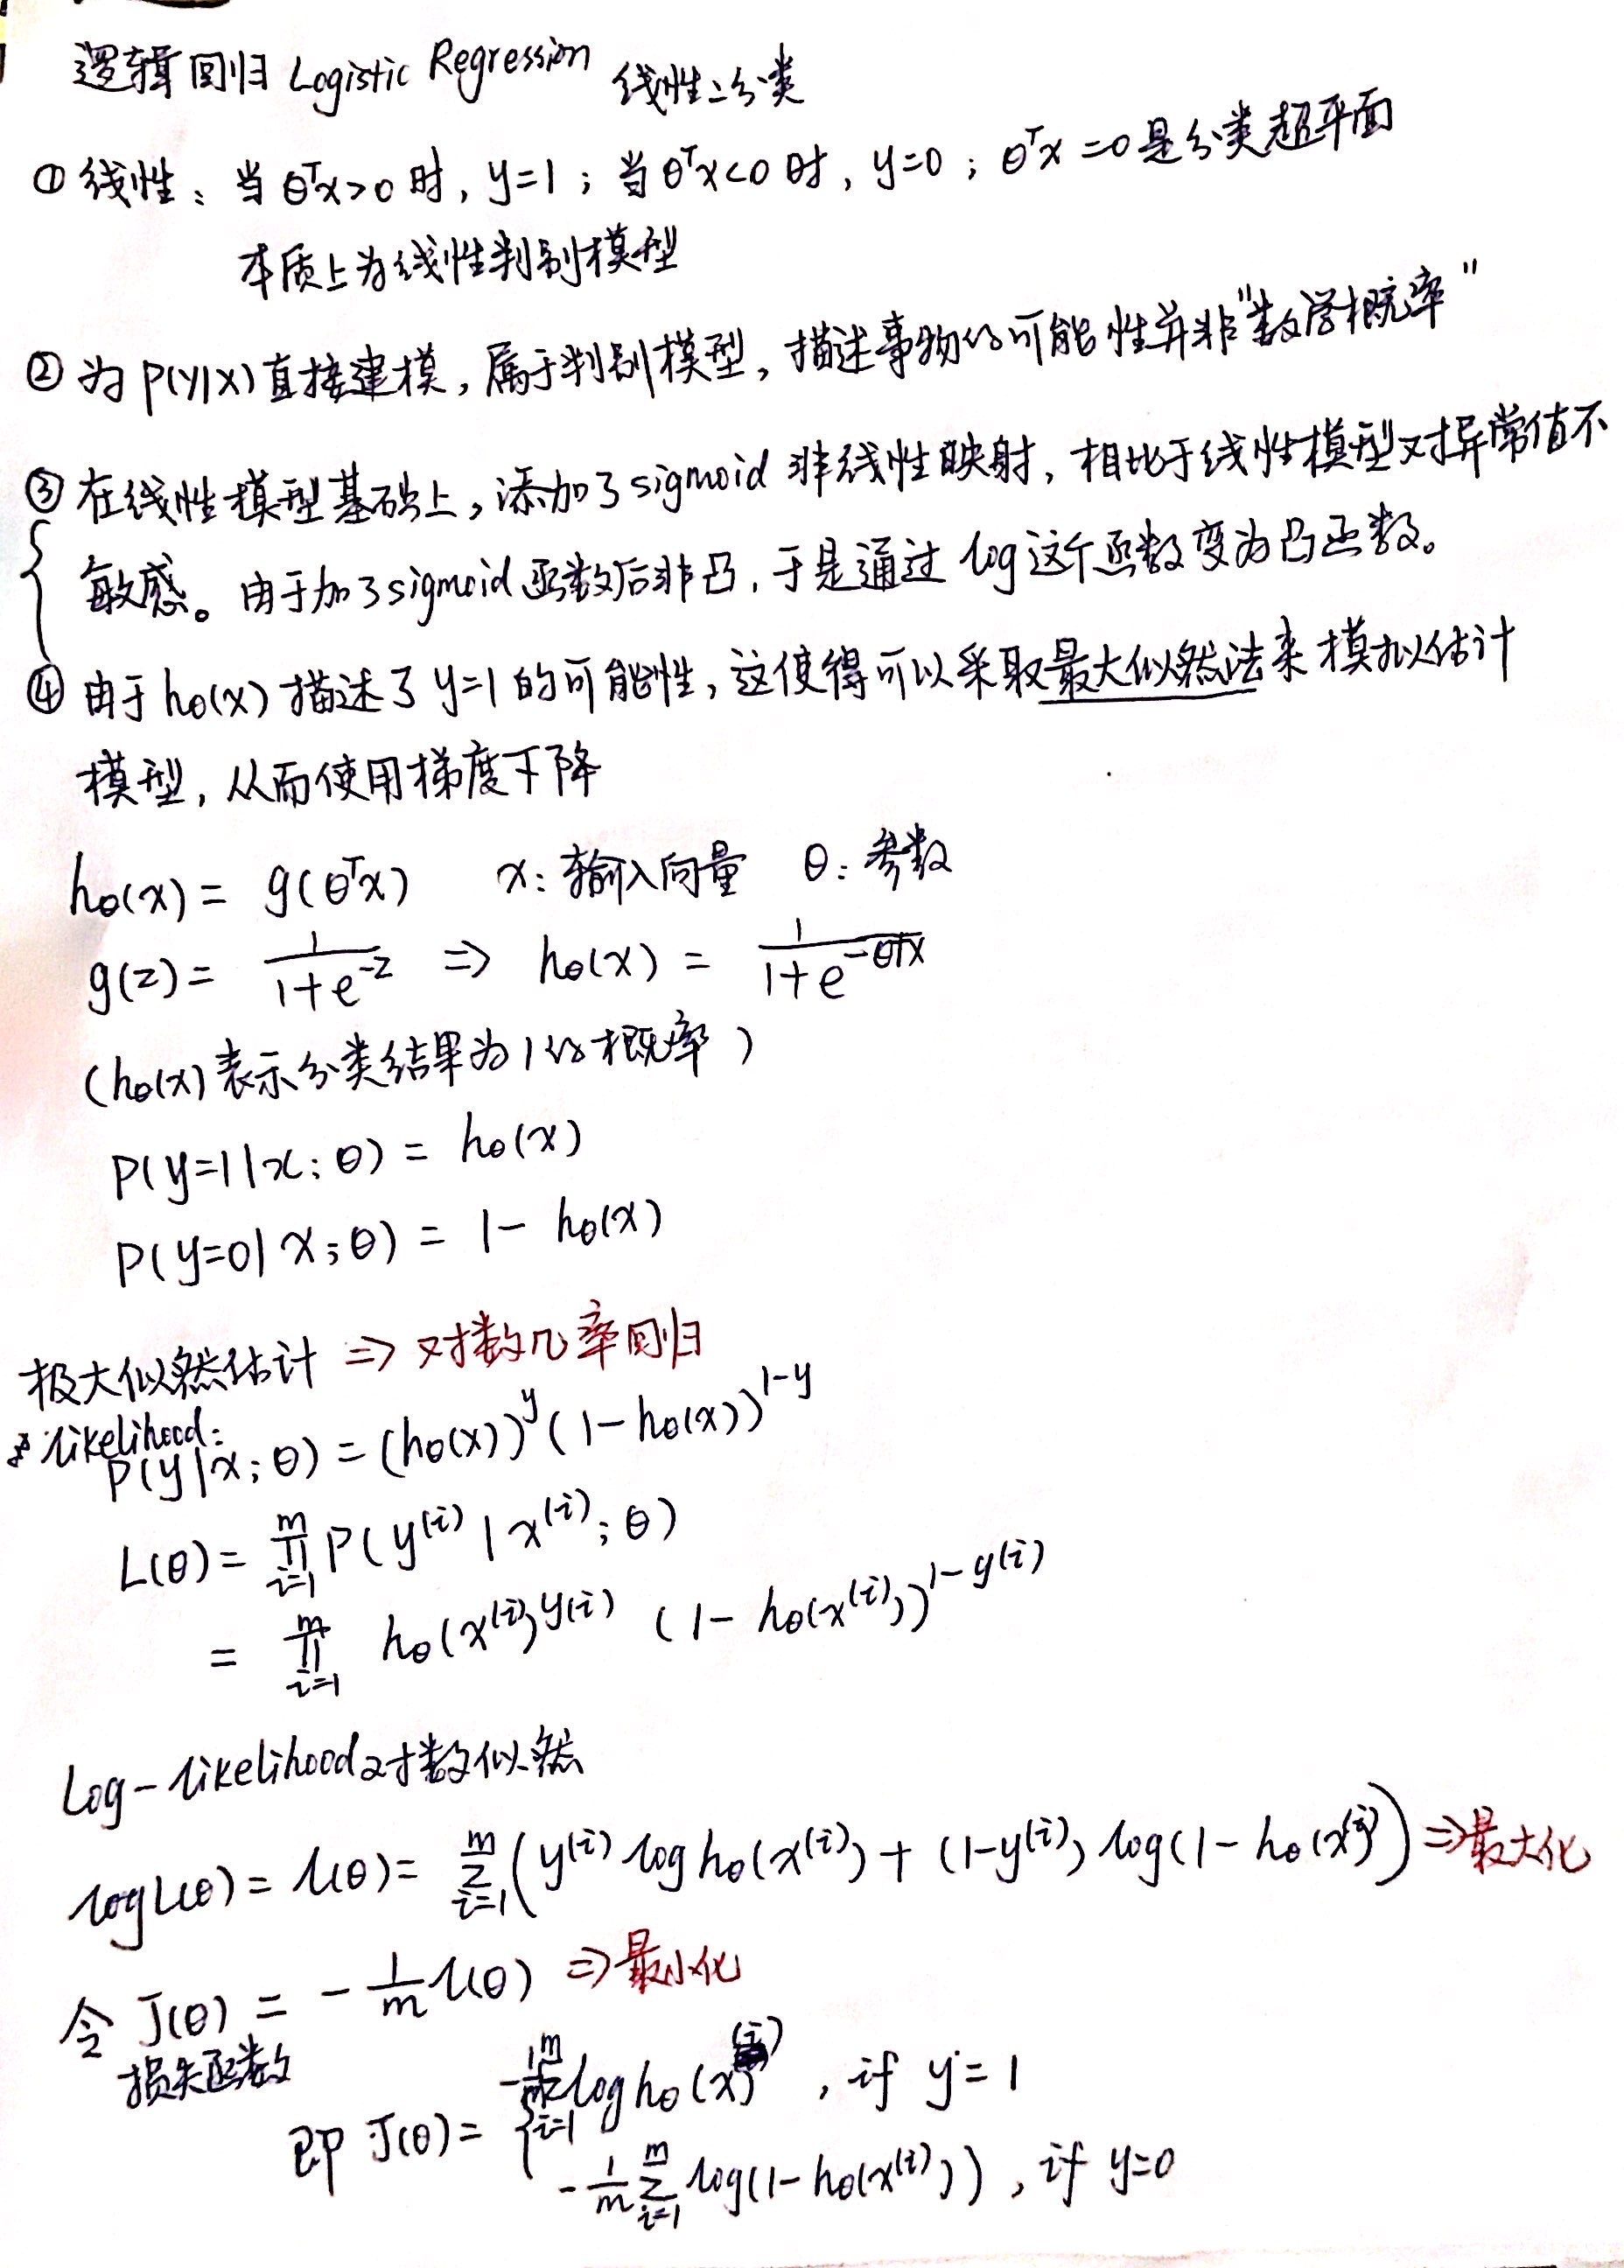 逻辑回归 Logistic Regression 线性二分类
① 线性：当 θᵀx>0 时, y=1；当 θᵀx<0 时, y=0；θᵀx=0 是分类超平面
本质上为线性判别模型
② 为 P(y|x) 直接建模, 属于判别模型, 描述事物的可能性并非"数学概率"
③ 在线性模型基础上, 添加了sigmoid 非线性映射, 相比于线性模型对异常值不
敏感。由于加了sigmoid函数后非凸, 于是通过 log 这个函数变为凸函数。
④ 由于 hθ(x) 描述了 y=1 的可能性, 这使得可以采取最大似然法来模拟估计
模型, 从而使用梯度下降
hθ(x) = g(θᵀx) x: 输入向量 θ: 参数
g(z) = 1/(1+e^-z) ⇒ hθ(x) = 1/(1+e^-θᵀx)
(hθ(x) 表示分类结果为1的概率)
P(y=1|x; θ) = hθ(x)
P(y=0|x; θ) = 1 - hθ(x)
极大似然估计 ⇒ 对数几率回归
likelihood:
P(y|x; θ) = (hθ(x))^y (1-hθ(x))^1-y
L(θ) = ∏_{i=1}^m P(y^(i) | x^(i); θ)
= ∏_{i=1}^m hθ(x^(i))^y(i) (1-hθ(x^(i)))^1-y(i)
Log-likelihood 对数似然
logL(θ) = l(θ) = ∑_{i=1}^m (y^(i) log hθ(x^(i)) + (1-y^(i)) log(1-hθ(x^(i)) ) ⇒ 最大化
令 J(θ) = -1/m l(θ) ⇒ 最小化
损失函数
即 J(θ) = { -1/m ∑_{i=1}^m log hθ(x^(i)) , if y=1
-1/m ∑_{i=1}^m log(1-hθ(x^(i))) , if y=0